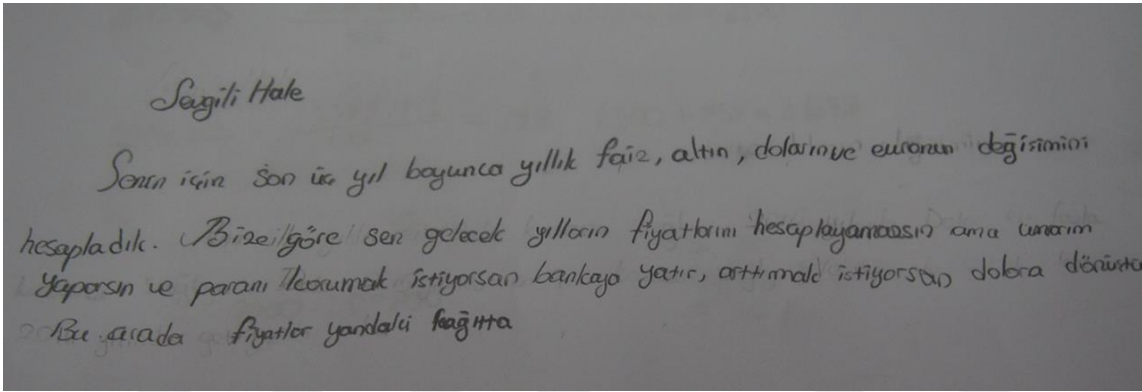 Sevgili Hale
Senin için son üç yıl boyunca yıllık faiz, altın, dolarınve euronun değişimini
hesapladık. Bize göre sen gelecek yılların fiyatlarını hesaplayamazsın ama umarım
yaparsın ve paranı korumak istiyorsan bankaya yatır, arttırmak istiyorsan dolara dönüştür
Bu arada fiyatlar yandaki kağıtta